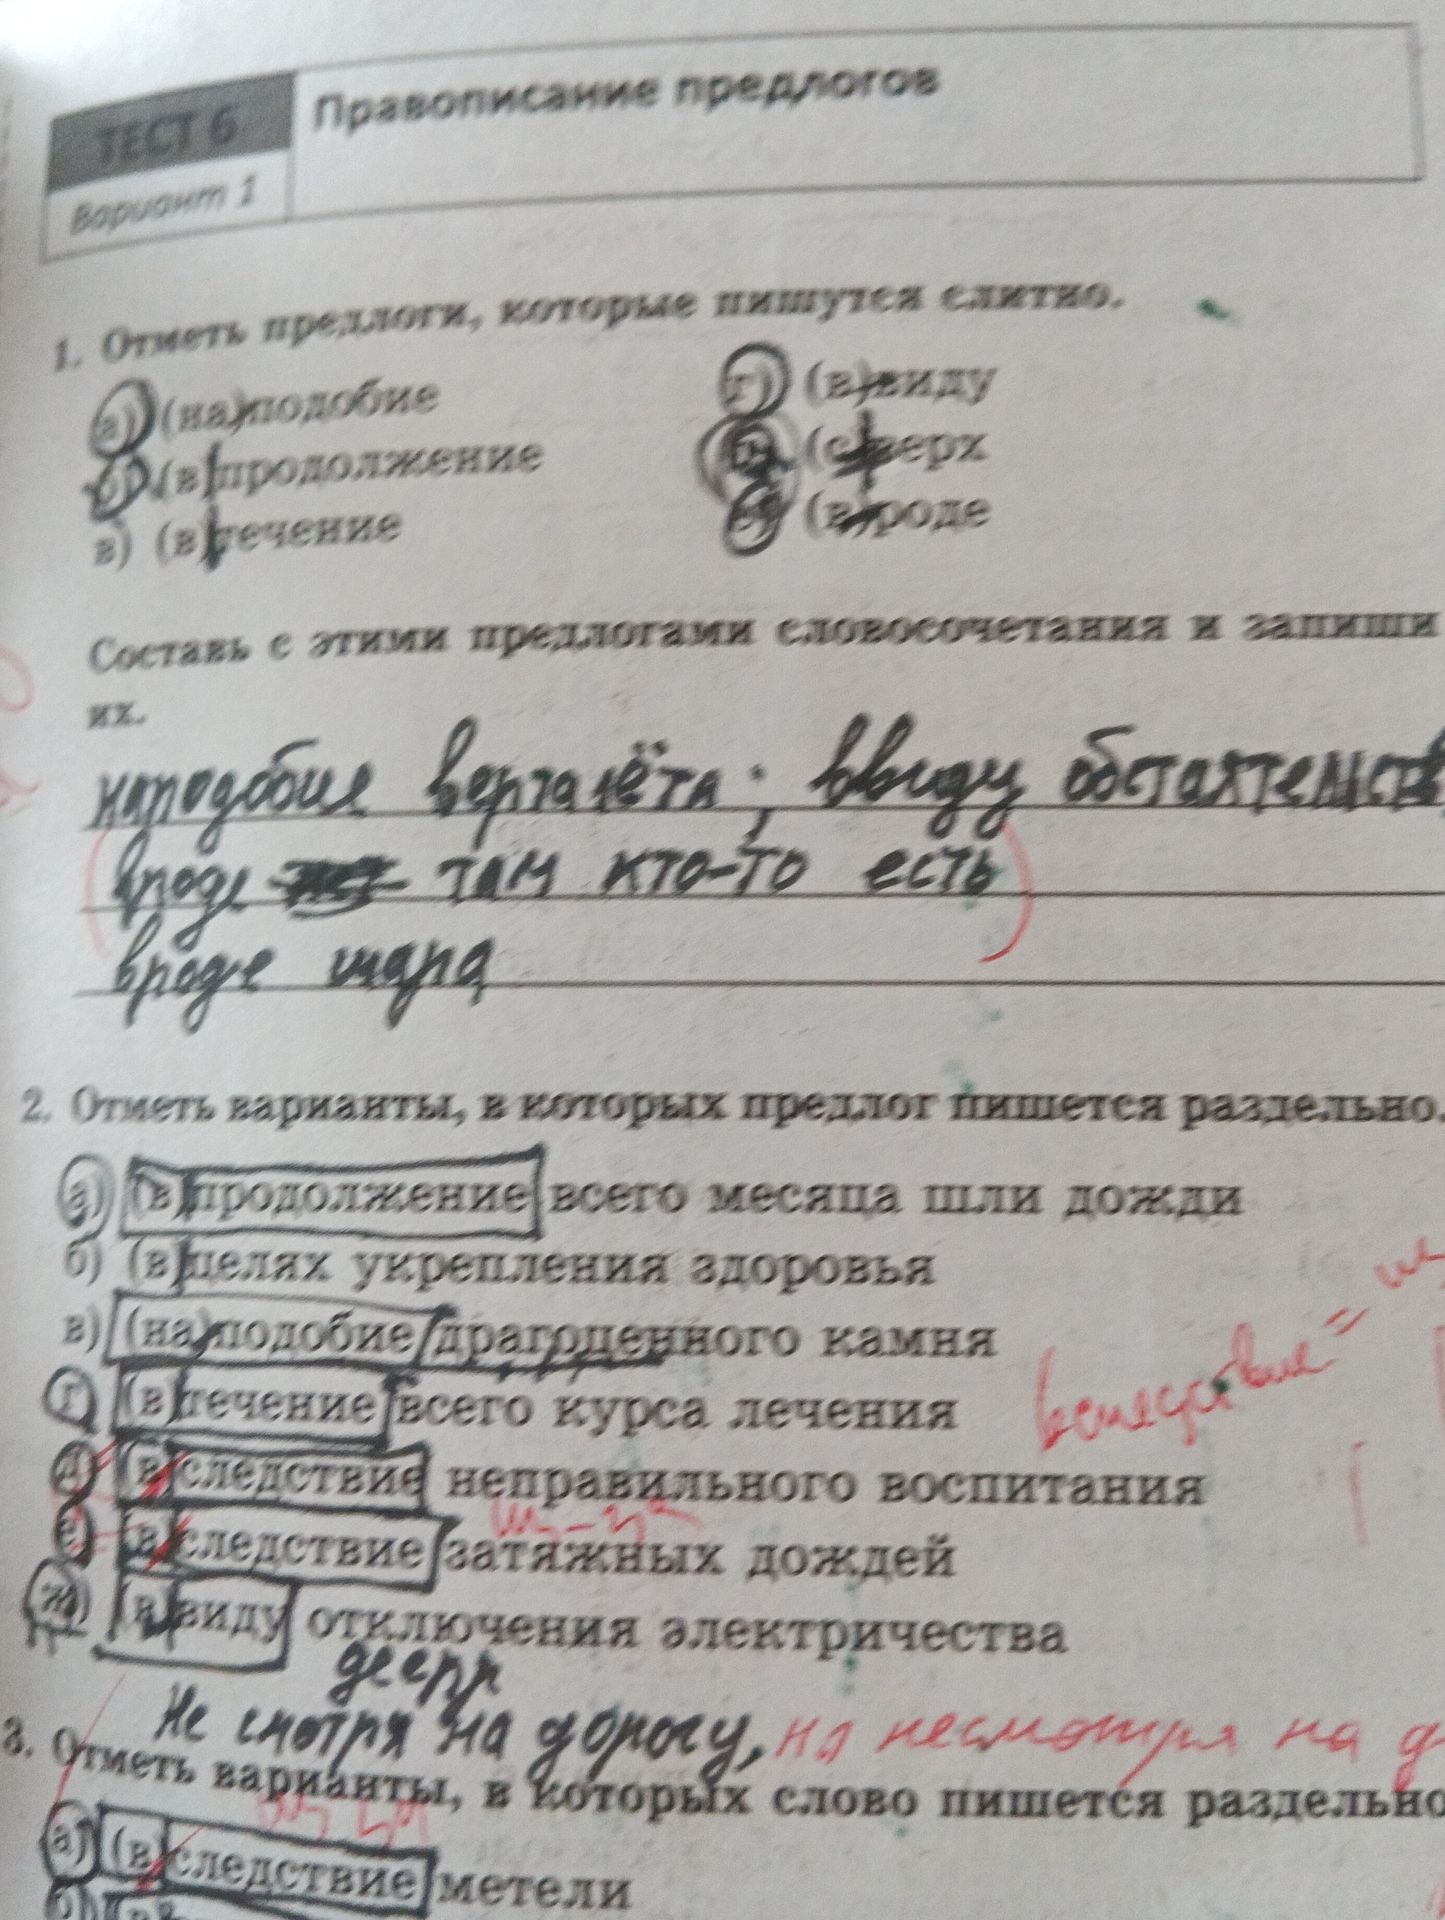 ТЕСТ 6
Правописание предлогов
Вариант 1
1. Отметь предлоги, которые пишутся слитно.
а) (на)подобие
г) (в)виду
б) (в)продолжение
(с)верх
в) (в)течение
е) (в)роде
Составь с этими предлогами словосочетания и запиши
их.
наподобие вертолёта; ввиду обстоятельств
вроде там кто-то есть
вроде шара
2. Отметь варианты, в которых предлог пишется раздельно.
а) (в)продолжение всего месяца шли дожди
б) (в)целях укрепления здоровья
в) (на)подобие драгоценного камня
г) (в)течение всего курса лечения
вследствие =
д) (в)следствие неправильного воспитания
из-за
е) (в)следствие затяжных дождей
ж) (в)виду отключения электричества
деепр
Не смотря на дорогу, но несмотря на д
3. Отметь варианты, в которых слово пишется раздельно
из за
а) (в)следствие метели
б)